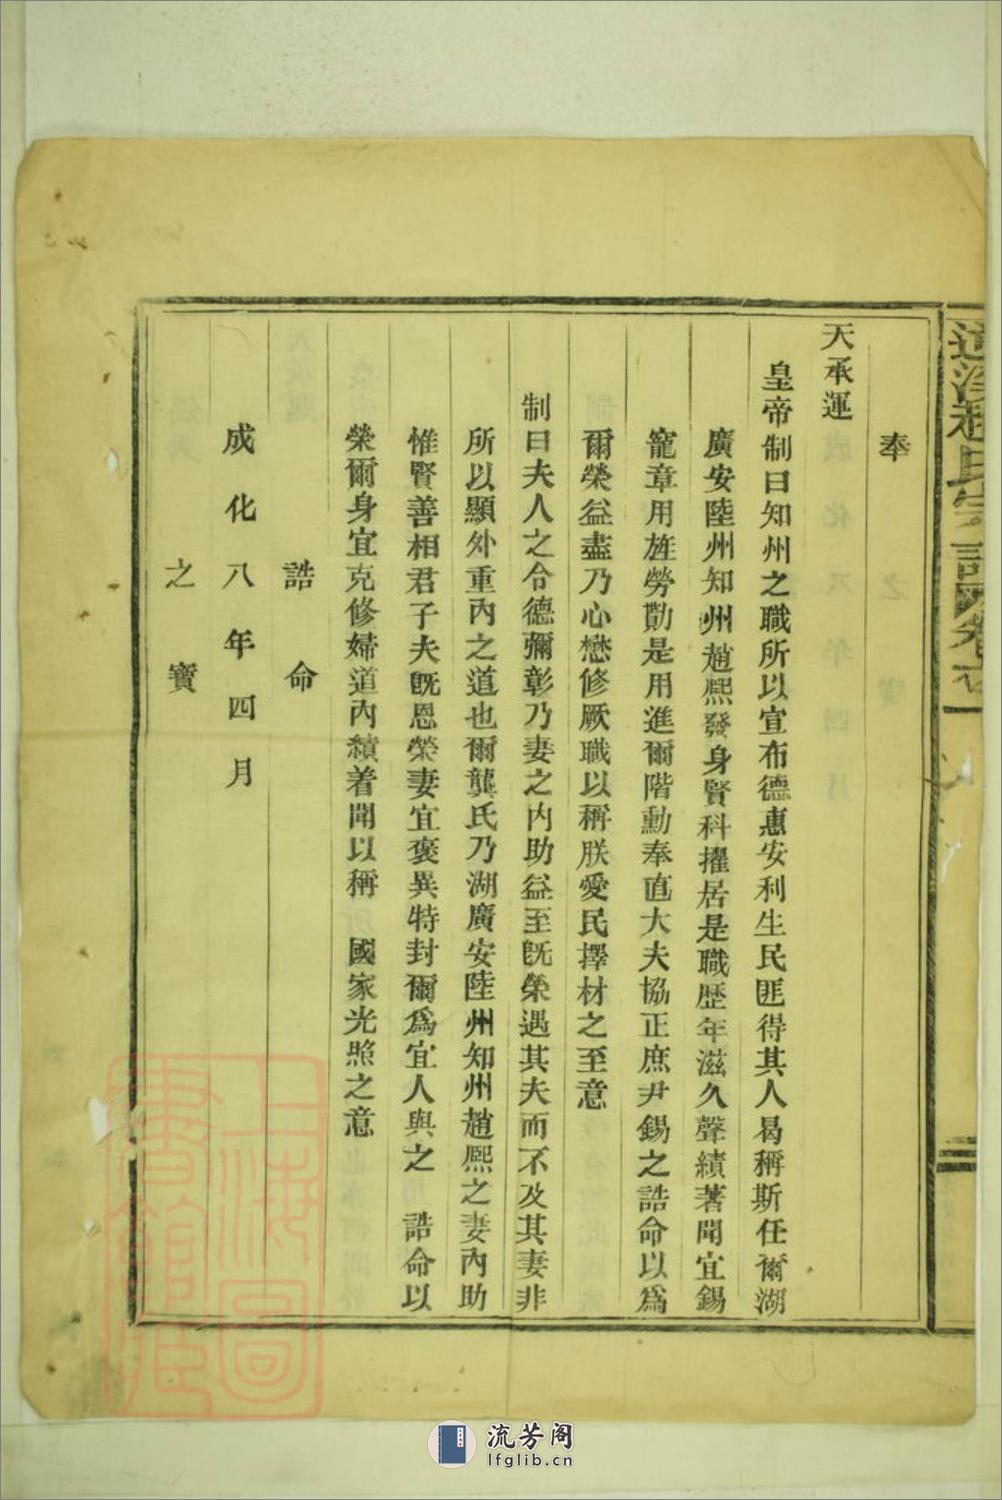 奉
天承運
皇帝制曰知州之職所以宣布德惠安利生民匪得其人曷稱斯任爾湖
廣安陸州知州趙熙發身賢科擢居是職歷年滋久聲績著聞宜錫
寵章用旌勞勩是用進爾階勳奉直大夫協正庶尹錫之誥命以為
爾榮益盡乃心懋修厥職以稱朕愛民擇材之至意
制曰夫人之合德彌彰乃妻之內助益至旣榮遇其夫而不及其妻非
所以顯外重內之道也爾龔氏乃湖廣安陸州知州趙熙之妻內助
惟賢善相君子夫旣恩榮妻宜褒異特封爾爲宜人與之 誥命以
榮爾身宜克修婦道內績着聞以稱 國家光照之意
誥命
成化八年四月
之寶
趙氏宗譜 卷首一
上海圖書館藏
流芳阁
lfglib.cn